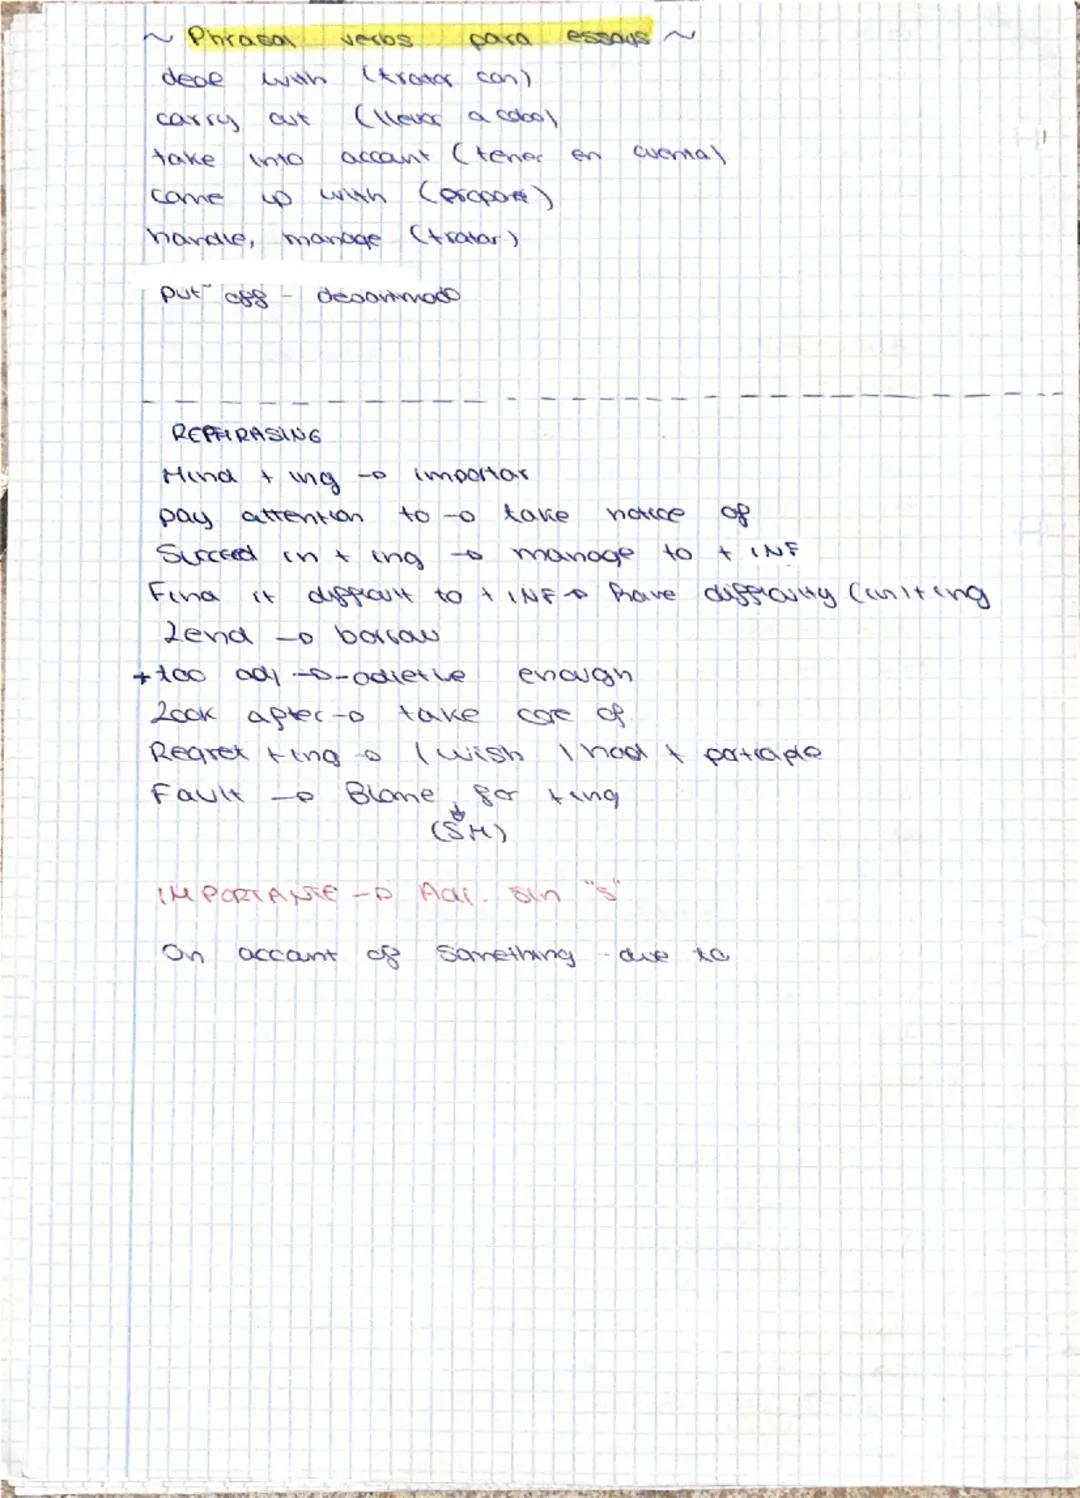 ~ Phrasal verbs para essays ~
deal with (tratar con)
carry out (llevar a cabo)
take into account (tener en cuenta)
come up with (proponer)
handle, manage (tratar)
put off -
REPHRASING
Mind + ing → importar
pay attention to → take notice of
Succeed in + ing → manage to + INF
Find it difficult to + INF → have difficulty (in) + ing
Lend → borrow
+ too adj → enough
Look after → take care of
Regret + ing → I wish I had + participle
Fault → Blame for + ing
(SM)
IMPORTANTE → Adj. sin "s"
On account of something - due to